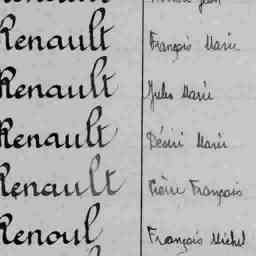 Renault François Marie
Renault Jules Marie
Renault Désiré Marie
Renault Pierre François
Renoul François Michel